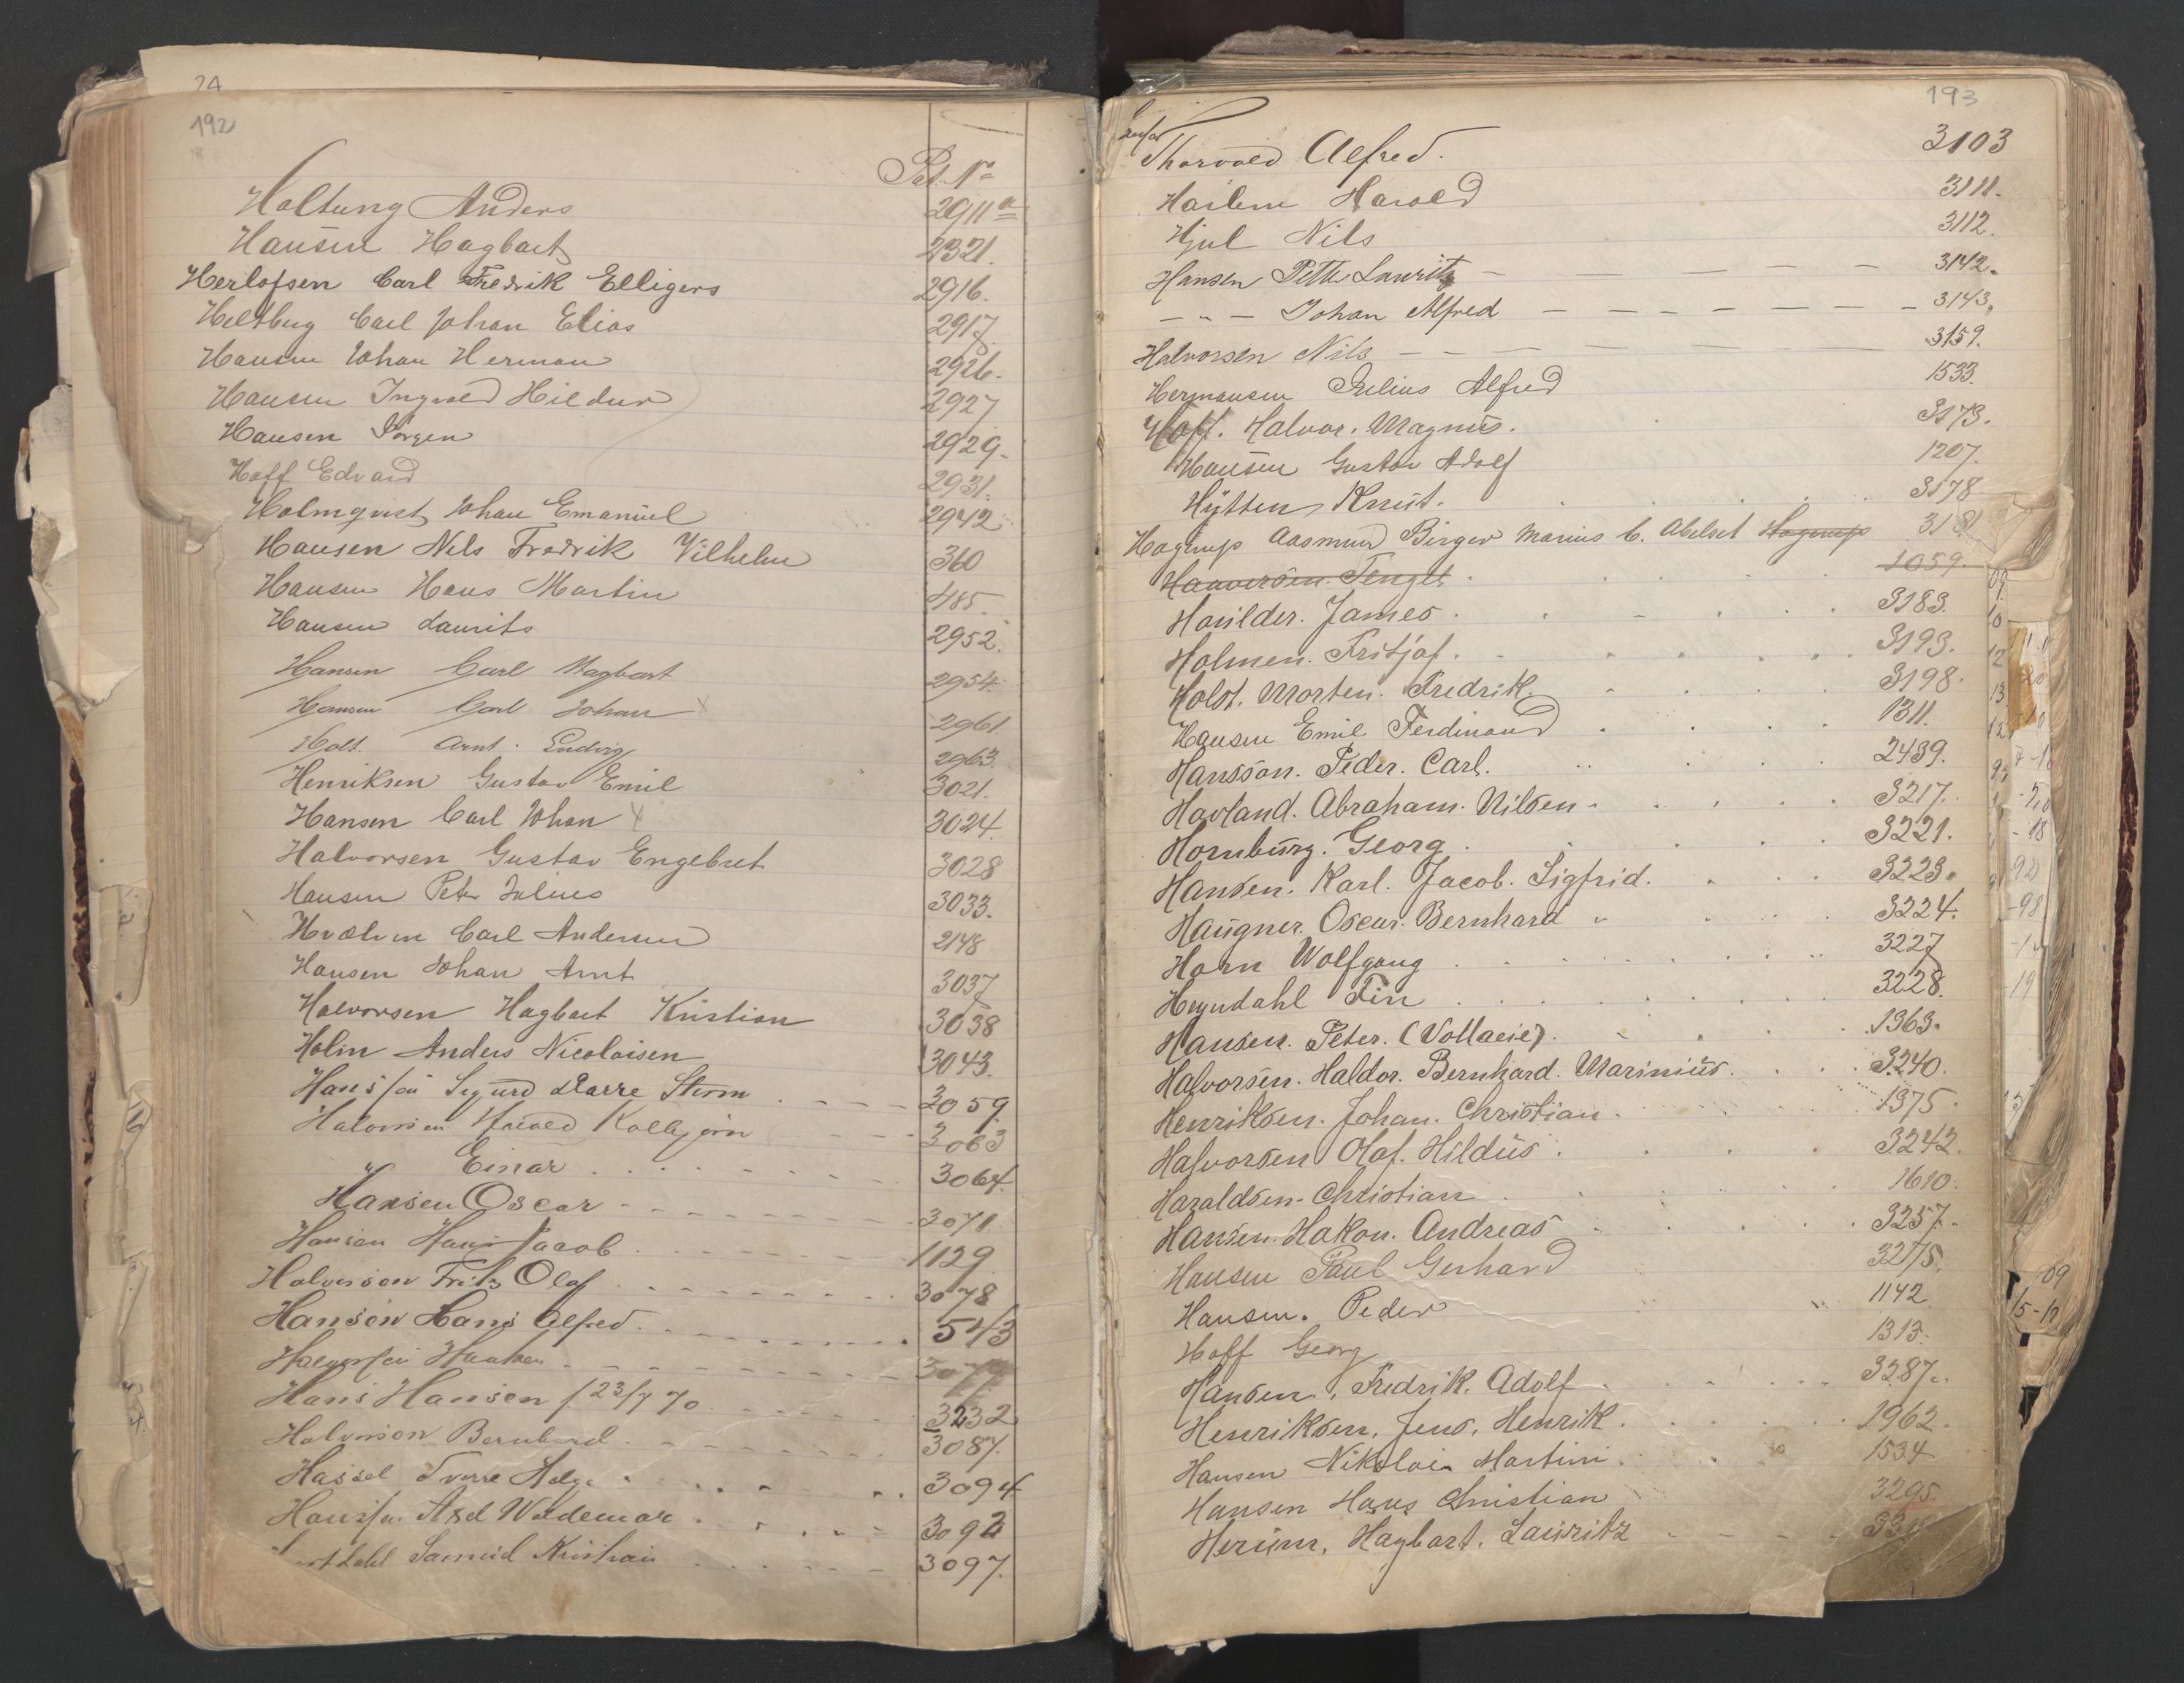 24
192
Pat. No
Holtung Anders 2911a
Hansen Hagbart 2321.
Herlofsen Carl Fredrik Elligers 2916.
Heltberg Carl Johan Elias 2917.
Hansen Johan Herman 2926.
Hansen Ingvald Hildur 2927
Hansen Jørgen 2929.
Hoff Edvard 2931.
Holmqvist Johan Emanuel 2942
Hansen Nils Fredrik Vilhelm 360
Hansen Hans Martin 485.
Hansen Laurits 2952.
Hansen Carl Hagbart 2954.
Hansen Carl Johan x 2961.
Holt. Arnt. Ludvig 2963.
Henriksen Gustav Emil 3021.
Hansen Carl Johan x 3024.
Halvorsen Gustav Engebret 3028
Hansen Peter Julius 3033.
Hvalven Carl Andersen 2148
Hansen Johan Arnt 3037
Halvorsen Hagbart Kristian 3038
Holm Anders Nicolaisen 3043.
Hansen Sigurd Harre Sturm 3059
Halvorsen Harald Kolbjørn 3063
" Einar 3064.
Hansen Oscar 3071.
Hansen Hans Jacob 1129
Halvorson Fritz Olaf 3078
Hanson Hans Alfred 543
Halvorsen Haaken
Hans Hansen f 23/7 70 3232
Halvorson Bernhard 3087.
Hassel Sverre Helge 3094
Hansen Axel Waldemar 3092
Samuel Kristian 3097.
193
Hansen
Thorvald Alfred. 3103
Harlem Harald 3111.
Hjul Nils 3112.
Hansen Petter Lauritz 3142.
— " — Johan Alfred 3143.
Halvorsen Nils 3159.
Hermansen Julius Alfred 1533.
Hoff. Halvor. Magnus. 3173.
Hansen Gustav Adolf 1207.
Hÿtten Knut. 3178
Hagrup Aasmund Birger Marius C. Abelset Hagrup 3181
Haaversen Tenget. 1059.
Houilder. James. 3183.
Holmen. Fritjof. 3193.
Holst. Morten. Fredrik. 3198.
Hansen Emil Ferdinand 1311.
Hansson. Peder. Carl. 2439.
Havland. Abraham. Nilsen. 3217.
Hornburg. Georg. 3221.
Hansen. Karl. Jacob. Sigfrid. 3223.
Haugner. Oscar. Bernhard 3224.
Horn Wolfgang 3227
Heyndahl Fin 3228.
Hansen. Peter. (Vollaeie). 1363.
Halvorsen. Haldor. Bernhard. Marinius. 3240.
Henriksen. Johan. Christian. 1375.
Halvorsen Olaf. Hildus. 3242.
Haraldsen. Christian 1610.
Hansen. Hakon. Andreas 3257.
Hansen Paul Gerhard 3275.
Hansen. Peder 1142
Hoff Georg 1313.
Hansen, Fredrik. Adolf 3287.
Henriksen, Jens, Henrik. 1962.
Hansen Nikolai Martini. 1534
Hansen Hans Christian 3295.
Herum, Hagbart. Lauritz